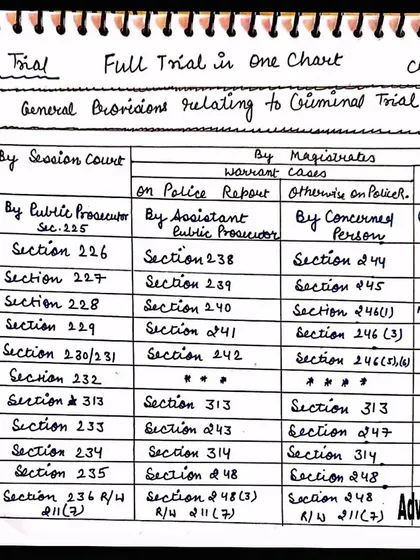 Trial
Full Trial in One Chart
General Provisions relating to Criminal Trial
By Session Court
By Magistrates
Warrant Cases
On Police Report
Otherwise on Police R.
By Public Prosecutor
Sec. 225
By Assistant
Public Prosecutor
By Concerned
Person
Section 226
Section 238
Section 244
Section 227
Section 239
Section 245
Section 228
Section 240
Section 246(1)
Section 229
Section 241
Section 246 (3)
Section 230/231
Section 242
Section 246(5),(6)
Section 232
* * *
* * * *
Section 313
Section 313
Section 313
Section 233
Section 243
Section 247
Section 234
Section 314
Section 314
Section 235
Section 248
Section 248
Section 236 R/W
211(7)
Section 248(3)
R/W 211(7)
Section 248
R/W 211(7)
Adv